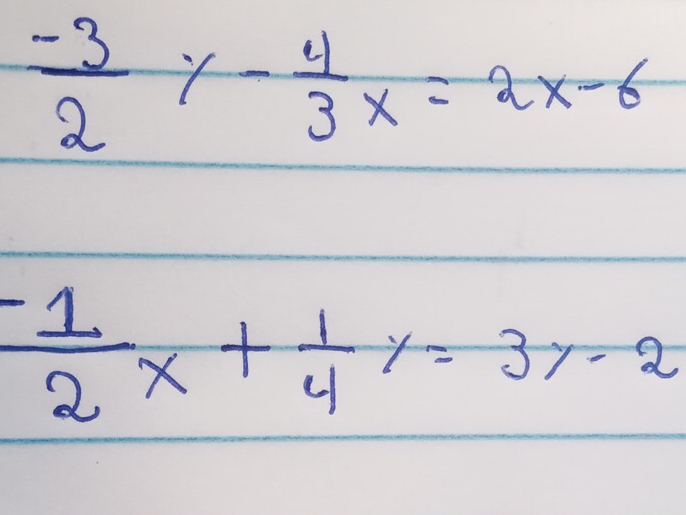 -3/2 y - 4/3 x = 2x - 6
-1/2 x + 1/4 y = 3y - 2